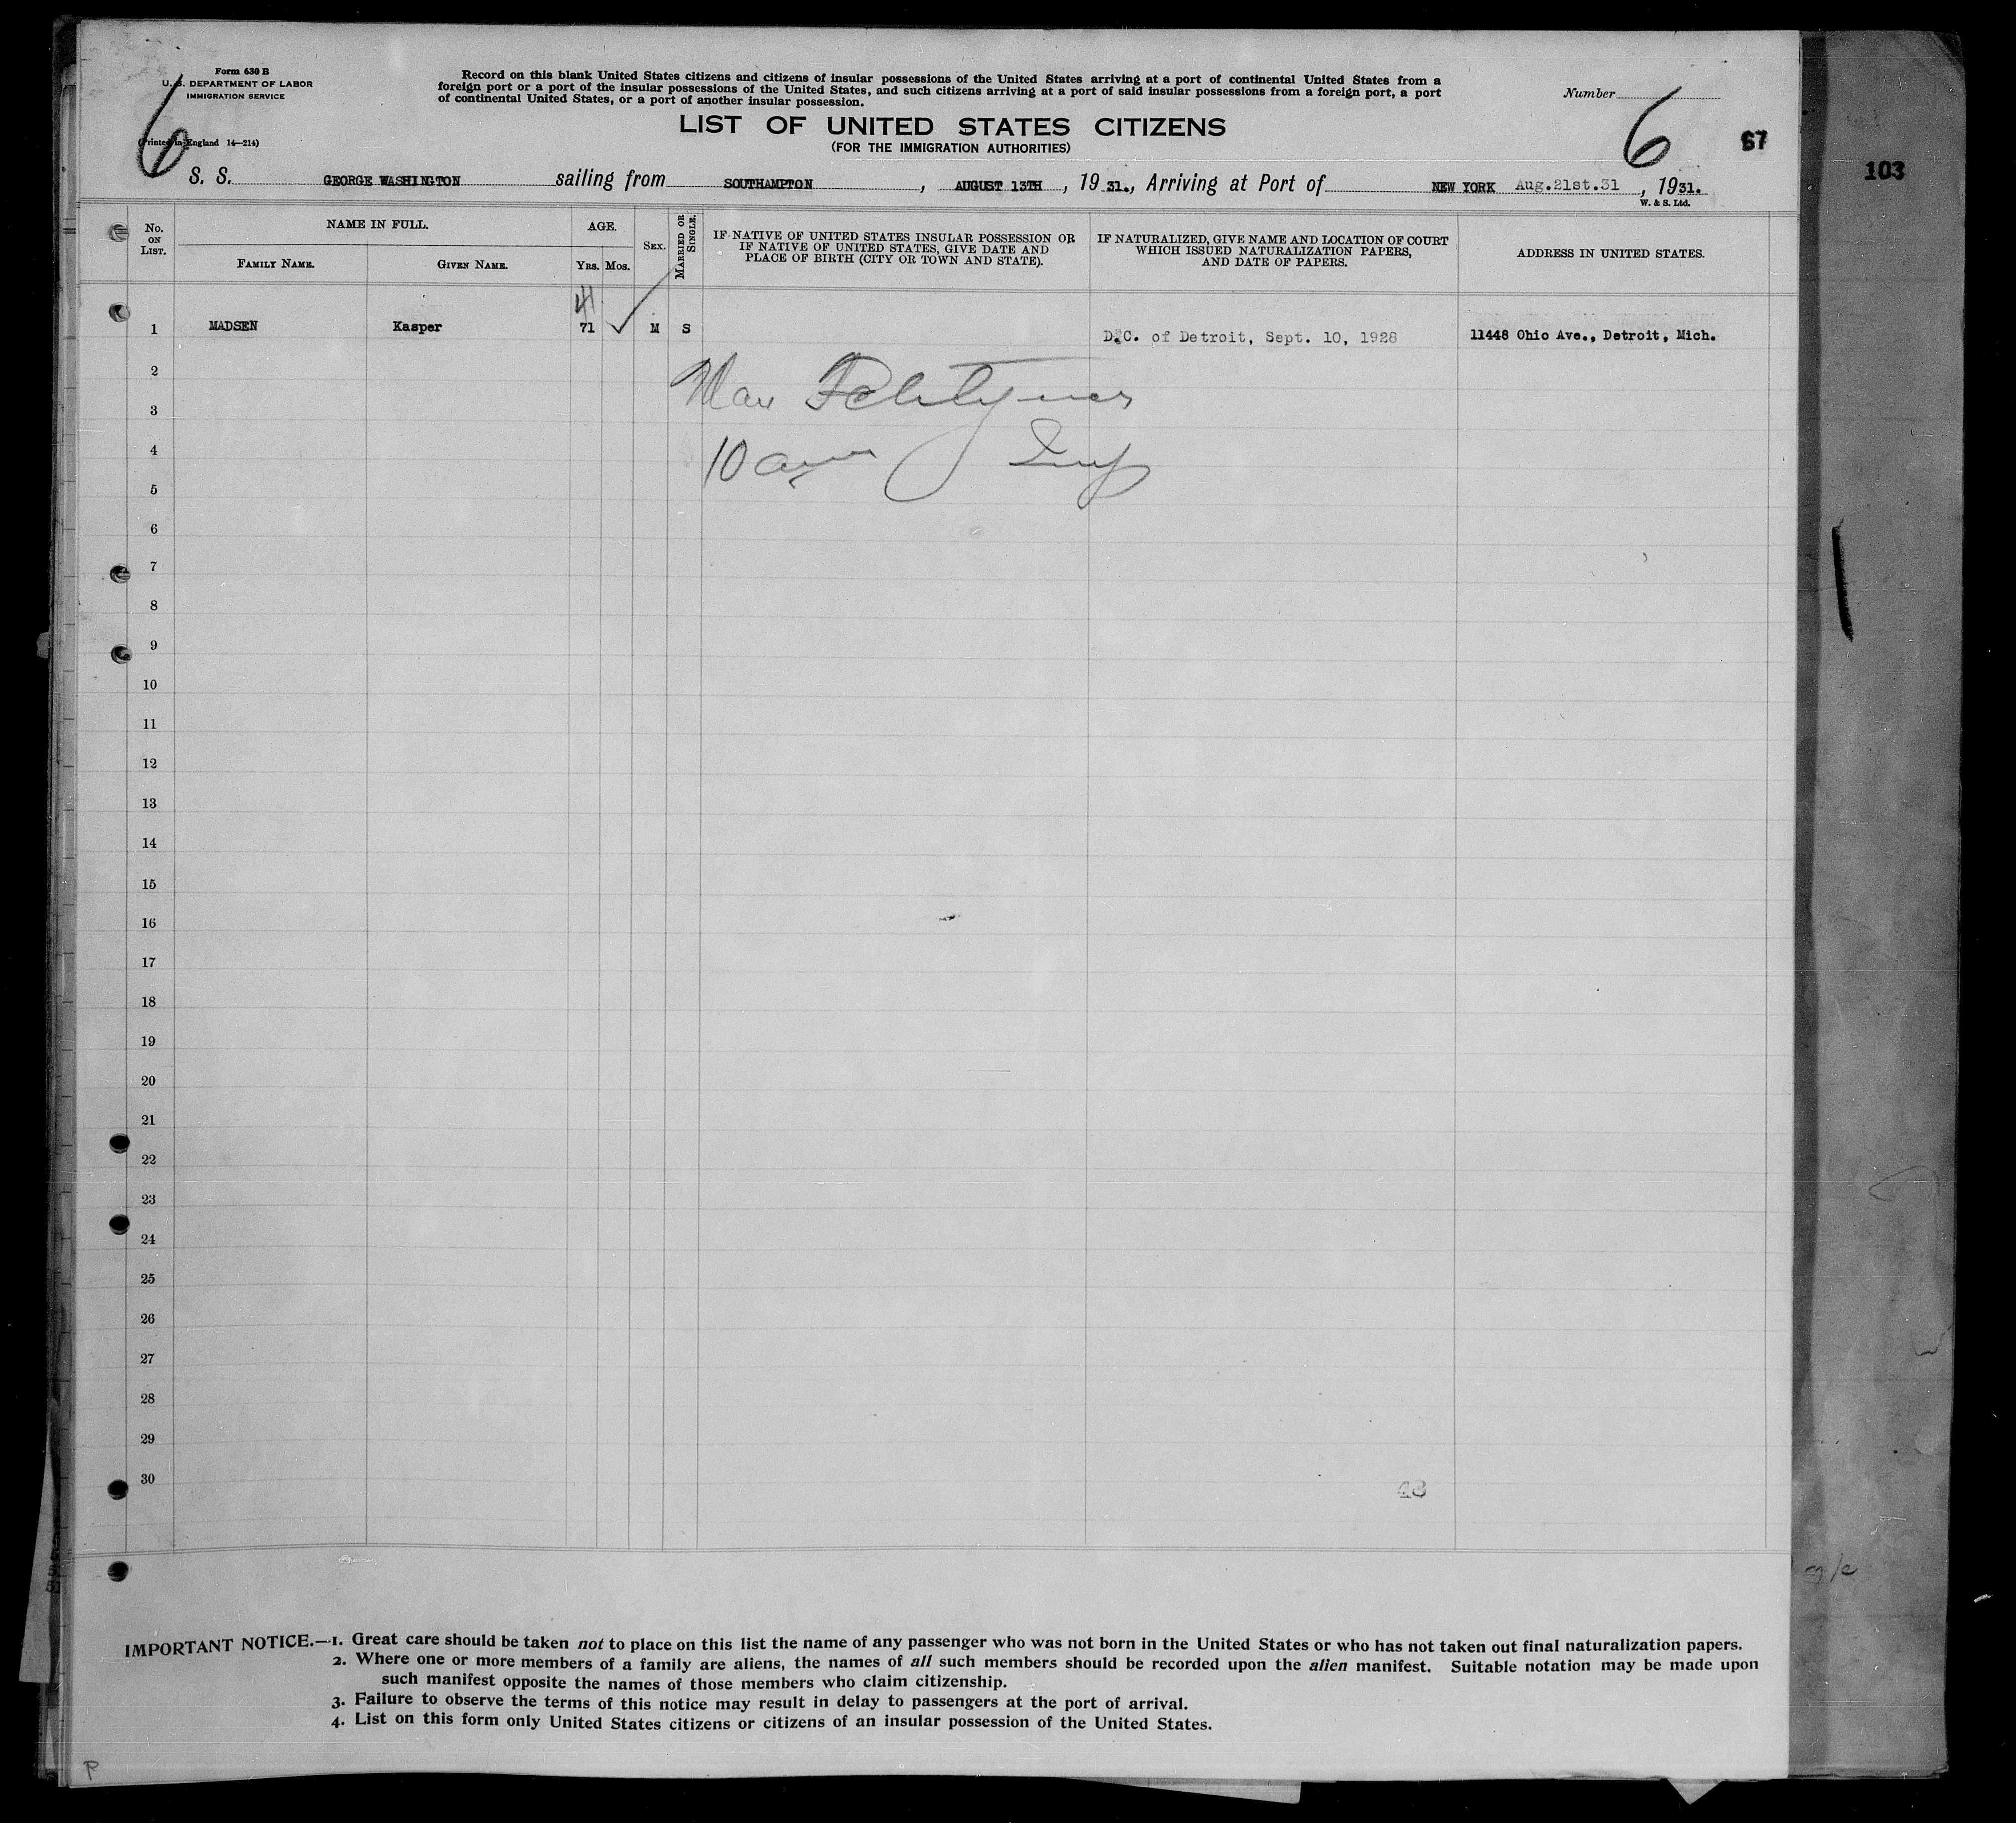 Form 630 B
U. S. DEPARTMENT OF LABOR
IMMIGRATION SERVICE
(Printed in England 14—214)
6
Record on this blank United States citizens and citizens of insular possessions of the United States arriving at a port of continental United States from a
foreign port or a port of the insular possessions of the United States, and such citizens arriving at a port of said insular possessions from a foreign port, a port
of continental United States, or a port of another insular possession.
LIST OF UNITED STATES CITIZENS
(FOR THE IMMIGRATION AUTHORITIES)
Number
6
67
103
S. S. GEORGE WASHINGTON sailing from SOUTHAMPTON, AUGUST 13TH, 19 31., Arriving at Port of NEW YORK Aug.21st.31, 1931.
W. & S. Ltd.
No. ON LIST.
NAME IN FULL.
FAMILY NAME. GIVEN NAME.
AGE.
YRS. MOS.
SEX.
MARRIED OR SINGLE.
IF NATIVE OF UNITED STATES INSULAR POSSESSION OR
IF NATIVE OF UNITED STATES, GIVE DATE AND
PLACE OF BIRTH (CITY OR TOWN AND STATE).
IF NATURALIZED, GIVE NAME AND LOCATION OF COURT
WHICH ISSUED NATURALIZATION PAPERS,
AND DATE OF PAPERS.
ADDRESS IN UNITED STATES.
41
1 MADSEN Kasper 71 M S D.C. of Detroit, Sept. 10, 1928 11448 Ohio Ave., Detroit, Mich.
2
Max
3
4
10 am Insp
5
6
7
8
9
10
11
12
13
14
15
16
17
18
19
20
21
22
23
24
25
26
27
28
29
30
48
IMPORTANT NOTICE.—1. Great care should be taken not to place on this list the name of any passenger who was not born in the United States or who has not taken out final naturalization papers.
2. Where one or more members of a family are aliens, the names of all such members should be recorded upon the alien manifest. Suitable notation may be made upon
such manifest opposite the names of those members who claim citizenship.
3. Failure to observe the terms of this notice may result in delay to passengers at the port of arrival.
4. List on this form only United States citizens or citizens of an insular possession of the United States.
P